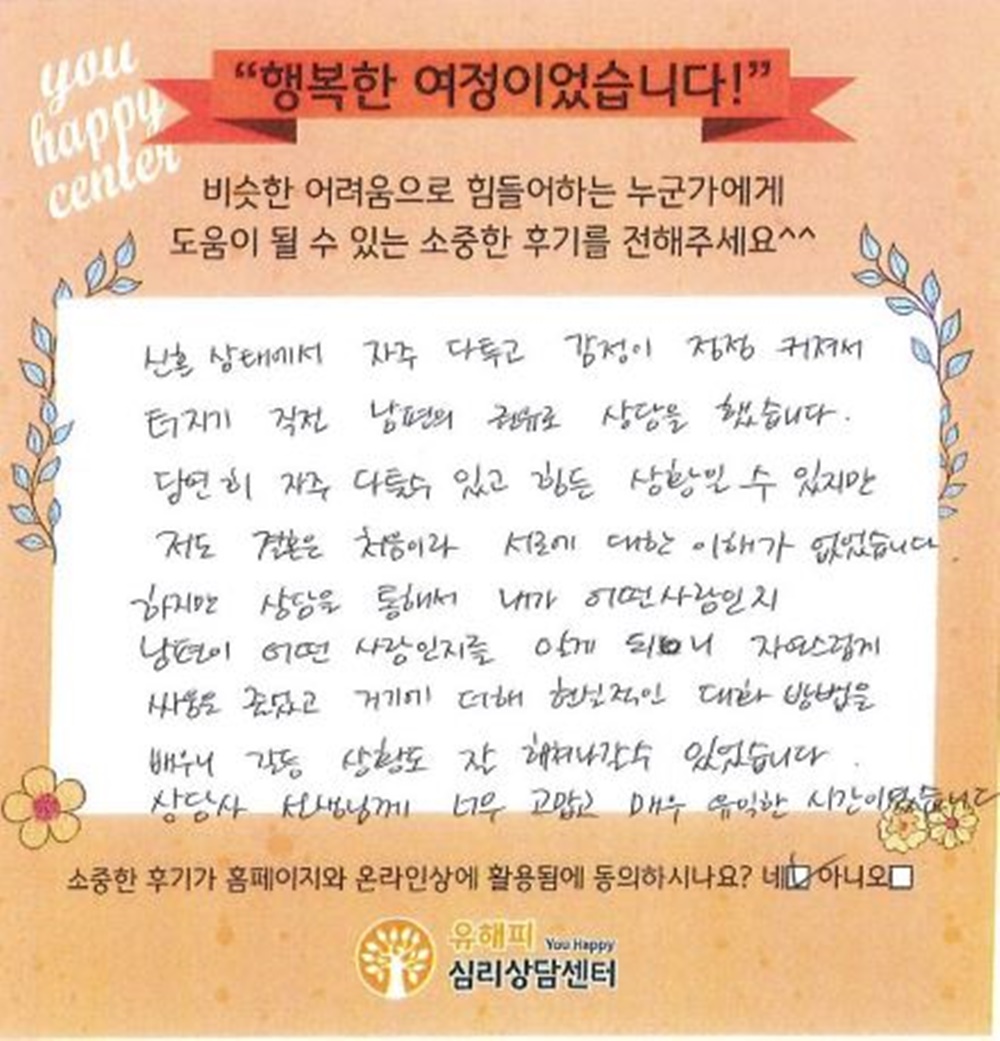 you
happy
center
“행복한 여정이었습니다!”
비슷한 어려움으로 힘들어하는 누군가에게
도움이 될 수 있는 소중한 후기를 전해주세요^^
신혼 상태에서 자주 다투고 감정이 점점 커져서
터지기 직전 남편의 권유로 상담을 했습니다.
당연히 자주 다툴수 있고 힘든 상황일 수 있지만
저도 결혼은 처음이라 서로에 대한 이해가 없었습니다.
하지만 상담을 통해서 내가 어떤사람인지
남편이 어떤 사람인지를 알게 되니 자연스럽게
싸움은 줄었고 거기에 더해 현실적인 대화 방법을
배우니 갈등 상황도 잘 헤쳐나갈수 있었습니다.
상담사 선생님께 너무 고맙고 매우 유익한 시간이였습니다
소중한 후기가 홈페이지와 온라인상에 활용됨에 동의하시나요? 네 아니오
유해피 You Happy
심리상담센터